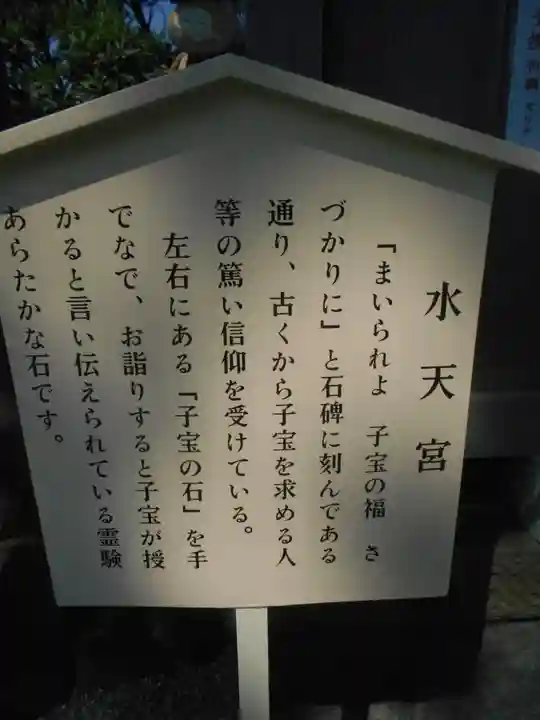 水天宮
「まいられよ　子宝の福　さ
づかりに」と石碑に刻んである
通り、古くから子宝を求める人
等の篤い信仰を受けている。
左右にある「子宝の石」を手
でなで、お詣りすると子宝が授
かると言い伝えられている霊験
あらたかな石です。